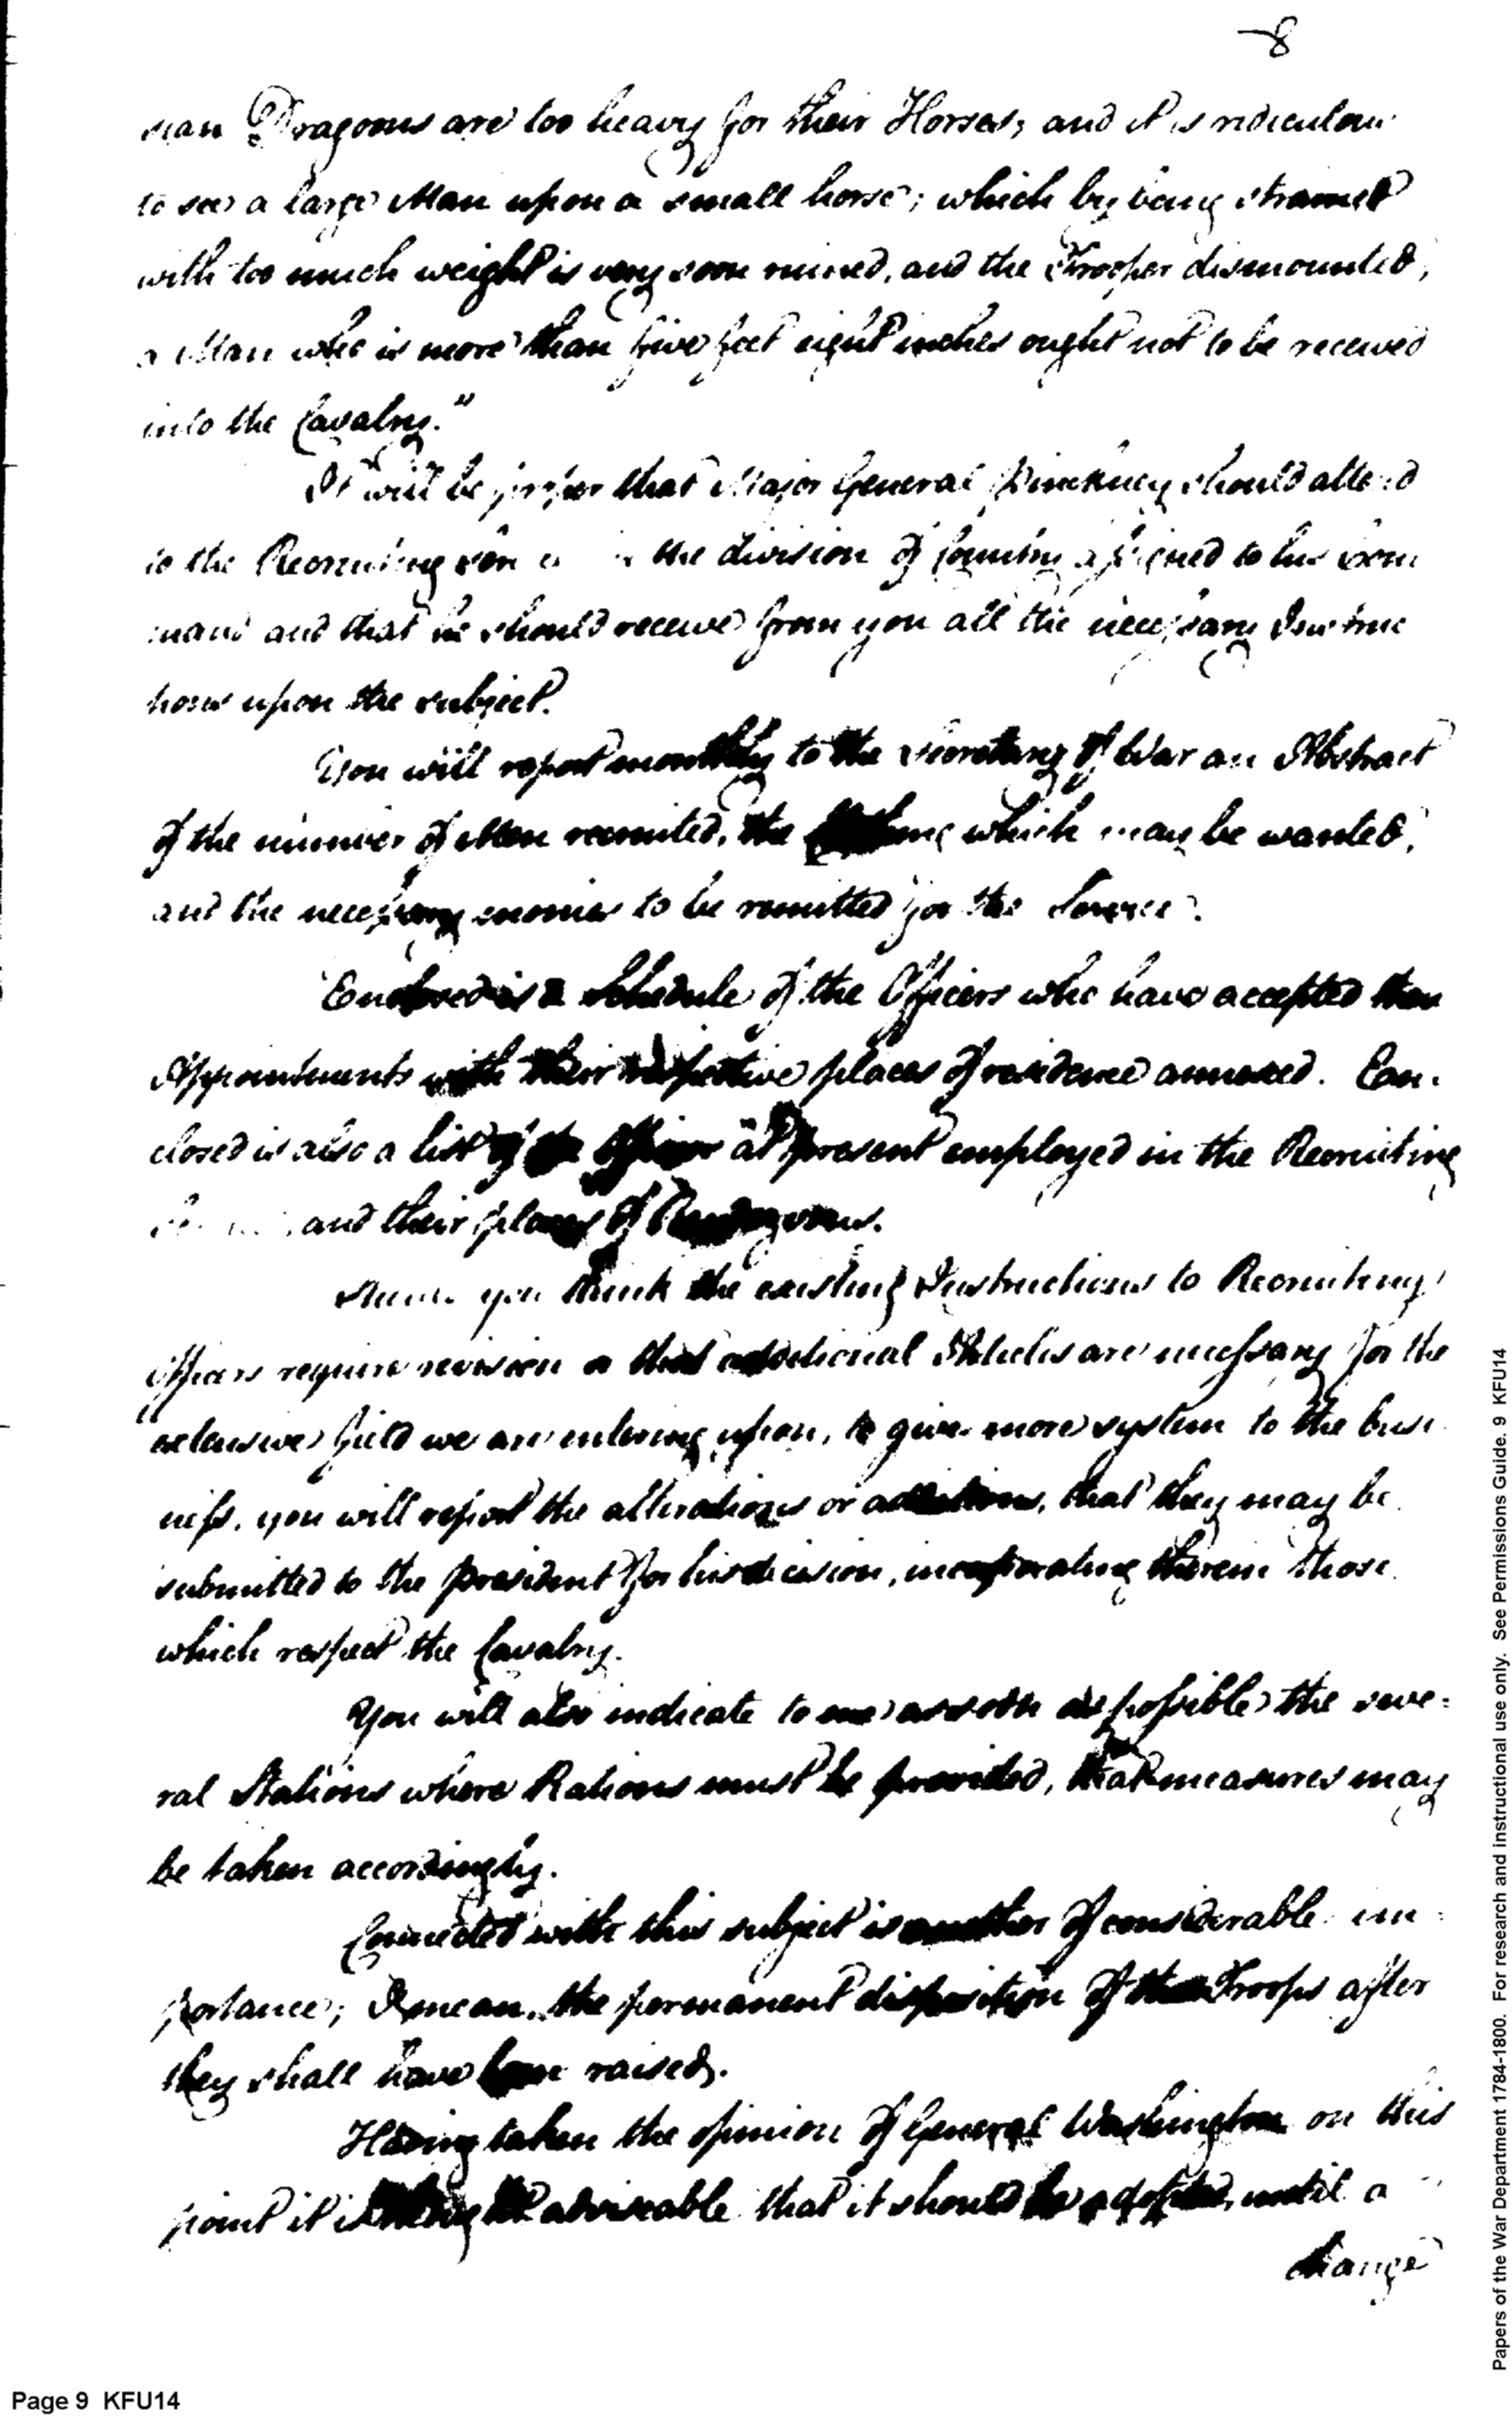 8
sian Dragoons are too heavy for their Horses; and it is ridiculous
to see a large Man upon a small horse; which by being strained
with too much weight is very soon ruined, and the Trooper dismounted,
a Man who is more than five feet eight inches ought not to be received
into the Cavalry."
It will be proper that Major General Pinckney should attend
to the Recruiting the division of Country assigned to his com
mand and that he should receive from you all the necessary Instruc
tions upon the subject.
You will report monthly to the Secretary of War an Abstract
of the number of Men recruited, the which may be wanted,
and the necessary monies to be remitted for the Service.
Enclosed is a Schedule of the Officers who have accepted their
Appointments with their respective places of residence annexed. En-
closed is also a list of the Officers at present employed in the Recruiting
and their places of Rendezvous.
Should you think the existing Instructions to Recruiting
Officers require revision or that additional Articles are necessary for the
extensive field we are entering upon, to give more system to the busi
ness, you will report the alterations or additions, that they may be
submitted to the president for his decision, incorporating therein those
which respect the Cavalry.
You will also indicate to me as soon as possible the seve=
ral Stations where Rations must be provided, that measures may
be taken accordingly.
Connected with this subject is another of considerable im=
portance; I mean, the permanent disposition of the Troops after
they shall have been raised.
Having taken the opinion of General Washington on this
point it is adviseable that it should be adopted, until a
change
Page 9 KFU14
Papers of the War Department 1784-1800. For research and instructional use only. See Permissions Guide. 9 KFU14